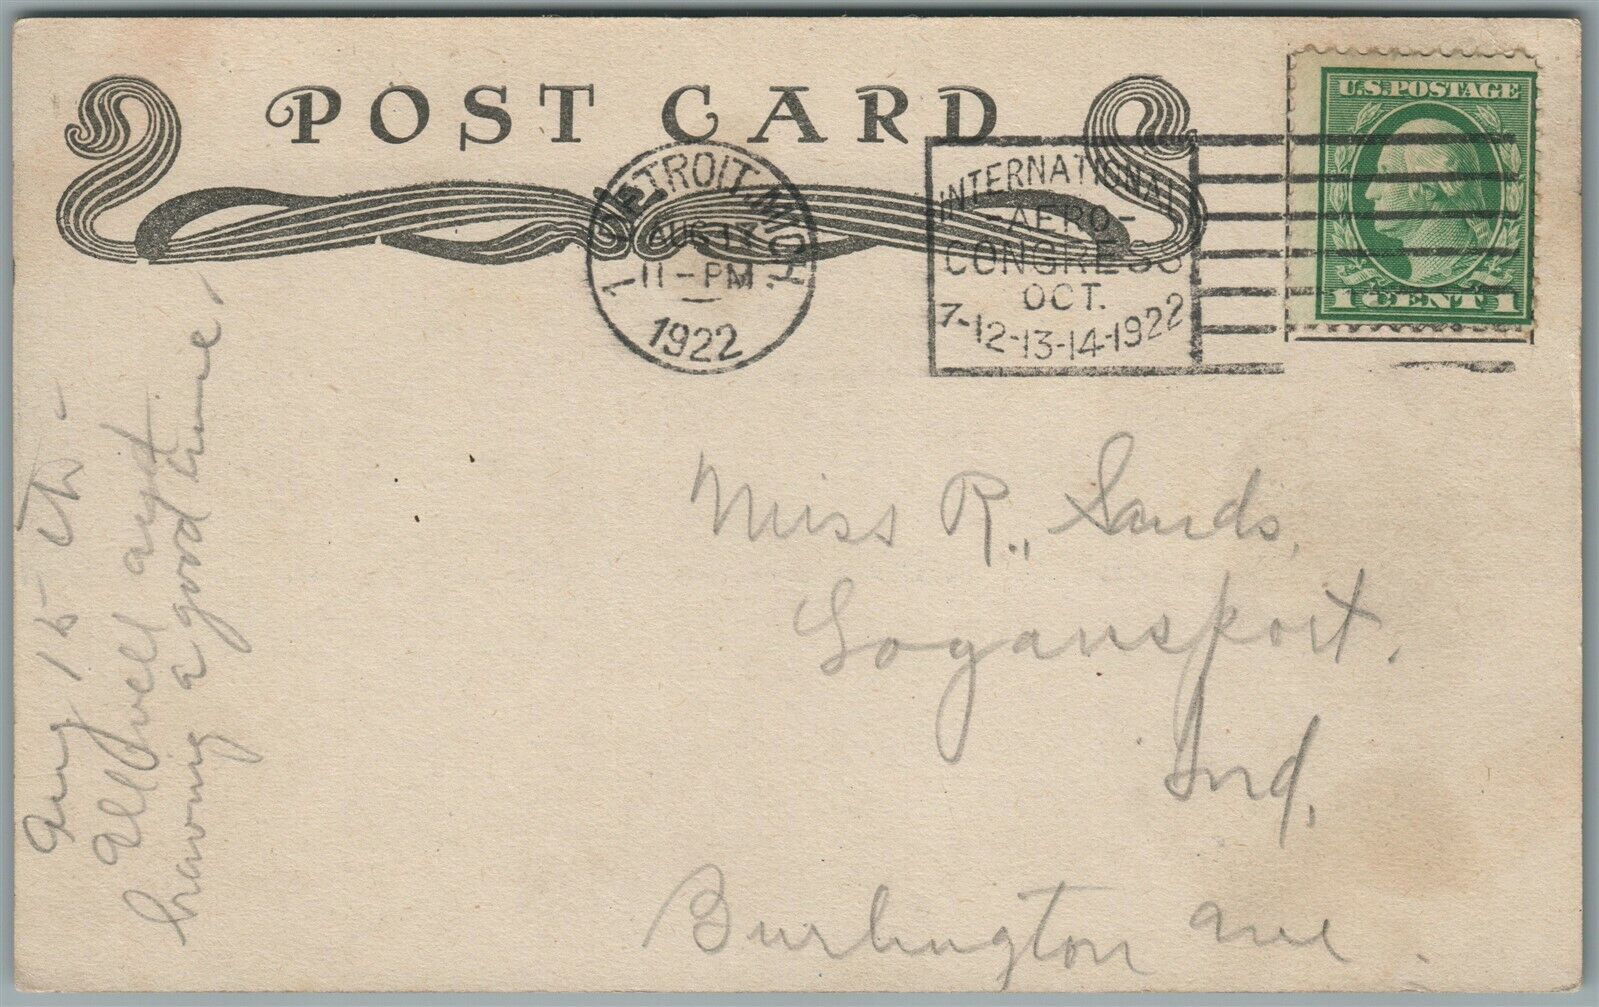 POST CARD
U.S. POSTAGE
1 CENT 1
DETROIT, MICH.
1
AUG 17
11-PM
1922
INTERNATIONAL
-AERO-
CONGRESS
OCT.
7-12-13-14-1922
Aug 15 th -
All well and
having a good time.
Miss R., Sands,
Logansport.
Ind,
Burlington ave.